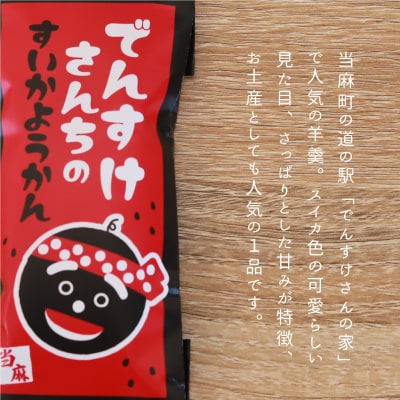 でんすけ
さんちの
すいかようかん
当麻
当麻町の道の駅「でんすけさんの家」
で人気の羊羹。スイカ色の可愛らしい
見た目、さっぱりとした甘みが特徴、
お土産としても人気の1品です。